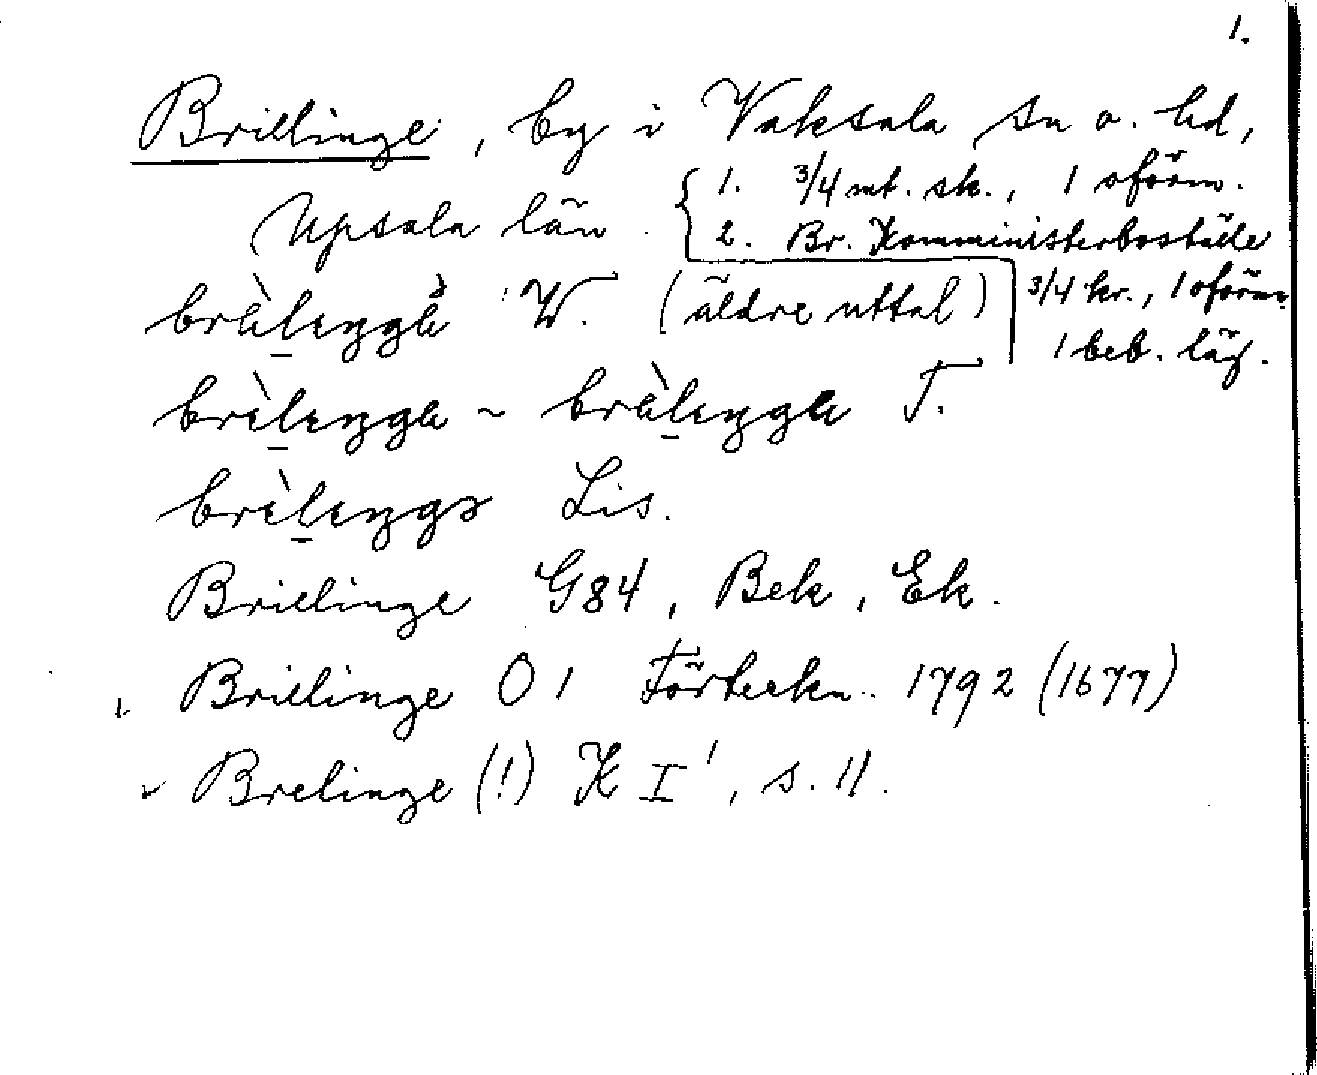 1.
Brillinge, by i Vaksala sn o. hd,
Upsala län. { 1. 3/4 mt. sk., 1 oförm.
2. Br. Komministerboställe
3/4 kr., 1 oförm.
1 beb. läg.
W. (äldre uttal)
~ T.
Lis.
Brillinge G84, Bek, Ek.
Brillinge O 1 Förteckn. 1792 (1677)
Brelinge (!) K I¹, s. 11.